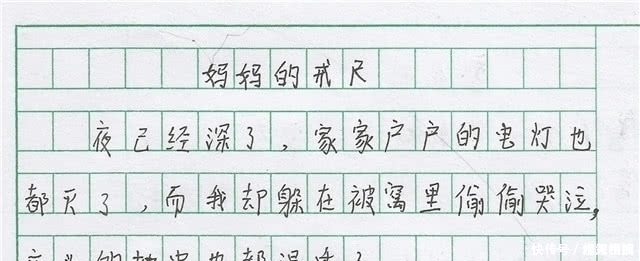 妈妈的戒尺
夜已经深了，家家户户的电灯也
都灭了，而我却躲在被窝里偷偷哭泣，
快传号 /